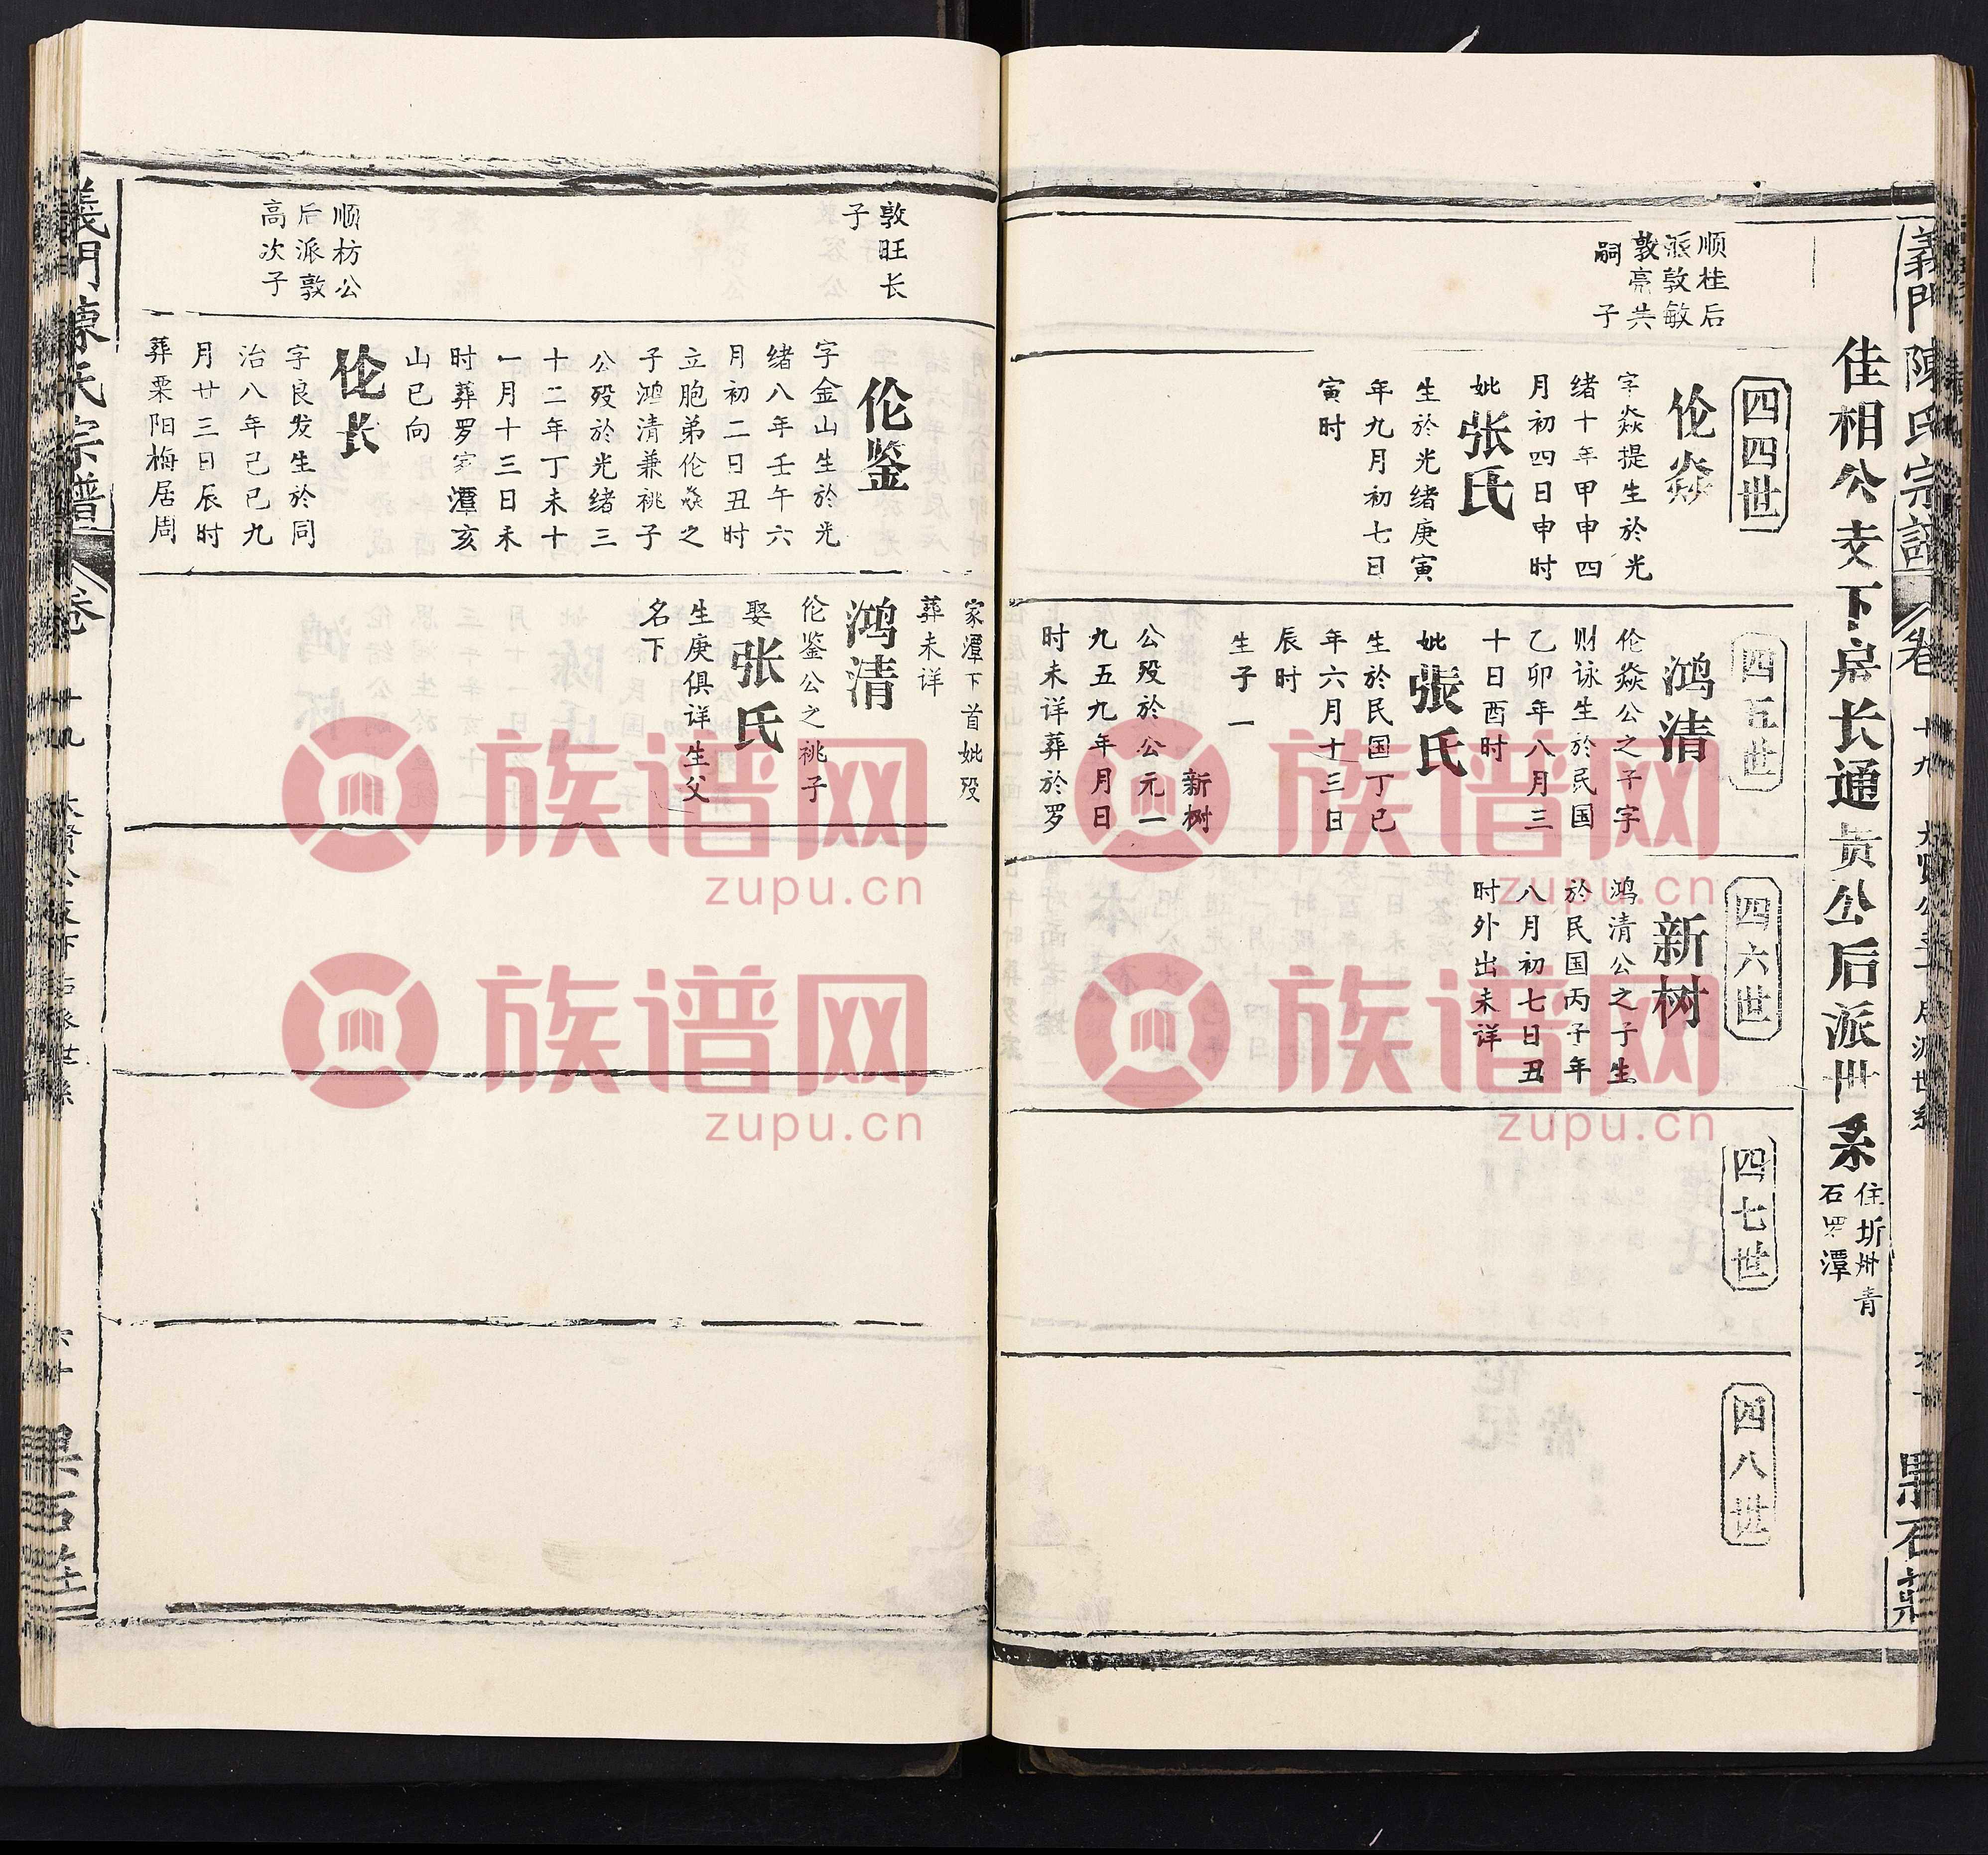 義門陳氏宗譜
卷
十九
黑石莊
佳相公支下房长通贵公后派世系
住圻州青
石罗潭
顺桂后
派敦敏
敦亮共
嗣子
四四世
伦焱
字焱提生於光
绪十年甲申四
月初四日申时
妣张氏
生於光绪庚寅
年九月初七日
寅时
四五世
鸿清
伦焱公之子字
财咏生於民国
乙卯年八月三
十日酉时
妣張氏
生於民国丁巳
年六月十三日
辰时
生子一
新树
公殁於公元一
九五九年月日
时未详葬於罗
四六世
新树
鸿清公之子生
於民国丙子年
八月初七日丑
时外出未详
四七世
四八世
敦旺长
子
伦鉴
字金山生於光
绪八年壬午六
月初二日丑时
立胞弟伦焱之
子鸿清兼祧子
公殁於光绪三
十二年丁未十
一月十三日未
时葬罗家潭亥
山巳向
顺枋公
后派敦
高次子
伦长
字良发生於同
治八年己巳九
月廿三日辰时
葬栗阳梅居周
家潭下首妣殁
葬未详
鸿清
伦鉴公之祧子
娶张氏
生庚俱详生父
名下
義門陳氏宗譜
卷
十九
族谱网
zupu.cn
族谱网
zupu.cn
族谱网
zupu.cn
族谱网
zupu.cn